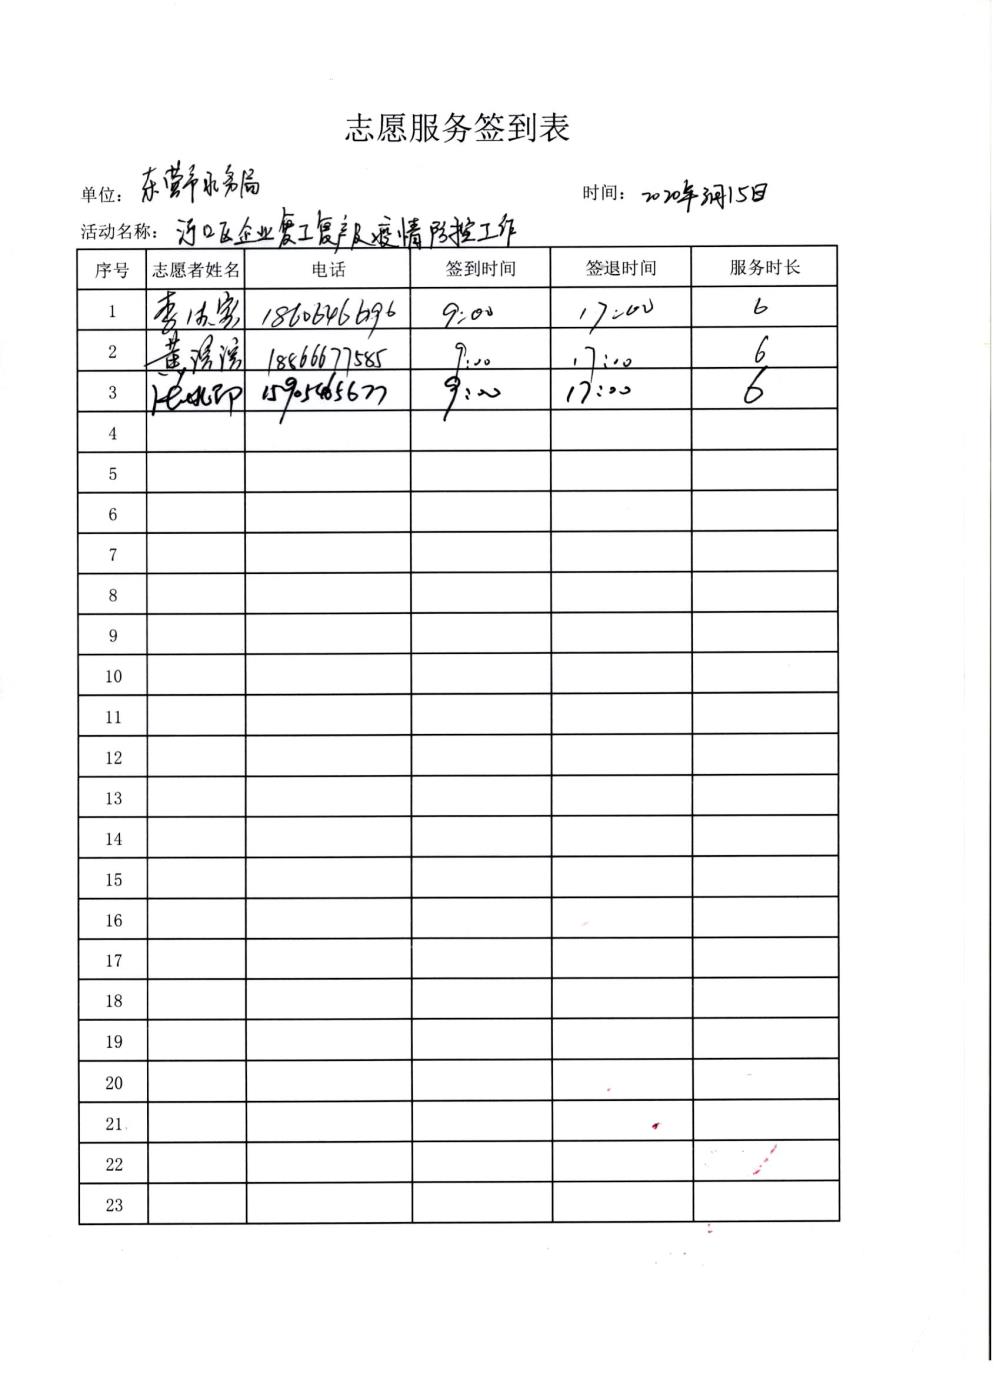 志愿服务签到表
单位： 东营市水务局 时间： 2020年3月15日
活动名称： 河口区企业复工复产及疫情防控工作
序号 志愿者姓名 电话 签到时间 签退时间 服务时长
1 李 9:00 17:00 6
2 黄 18866677585 9:00 17:00 6
3 15905465677 9:00 17:00 6
4
5
6
7
8
9
10
11
12
13
14
15
16
17
18
19
20
21
22
23